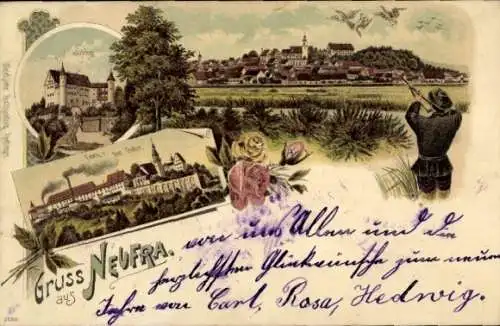 Schloss
Gruss aus Neufra.
von uns Allen und d d
herzlichsten Glückwünsche zum neuen
Jahre von Carl, Rosa, Hedwig.